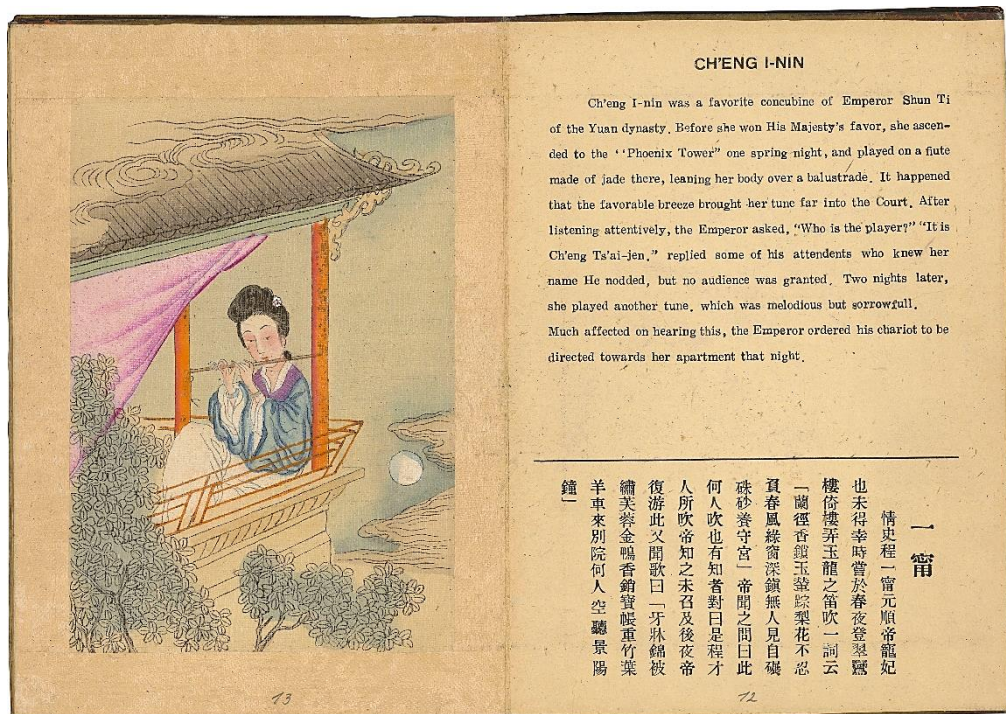 CH'ENG I-NIN
Ch'eng I-nin was a favorite concubine of Emperor Shun Ti
of the Yuan dynasty. Before she won His Majesty's favor, she ascen-
ded to the ''Phoenix Tower" one spring night, and played on a flute
made of jade there, leaning her body over a balustrade. It happened
that the favorable breeze brought her tune far into the Court. After
listening attentively, the Emperor asked, "Who is the player?" "It is
Ch'eng Ts'ai-jen." replied some of his attendents who knew her
name He nodded, but no audience was granted. Two nights later,
she played another tune. which was melodious but sorrowfull.
Much affected on hearing this, the Emperor ordered his chariot to be
directed towards her apartment that night.
一甯
情史程一甯元順帝寵妃
也未得幸時嘗於春夜登翠鸞
樓倚樓弄玉龍之笛吹一詞云
「蘭徑香銷玉輦踪梨花不忍
負春風綠窗深鎖無人見自碾
硃砂養守宮」帝聞之問曰此
何人吹也有知者對曰是程才
人所吹帝知之未召及後夜帝
復游此又聞歌曰「牙牀錦被
繡芙蓉金鴨香銷寶帳重竹葉
羊車來別院何人空聽景陽
鐘」
13
12